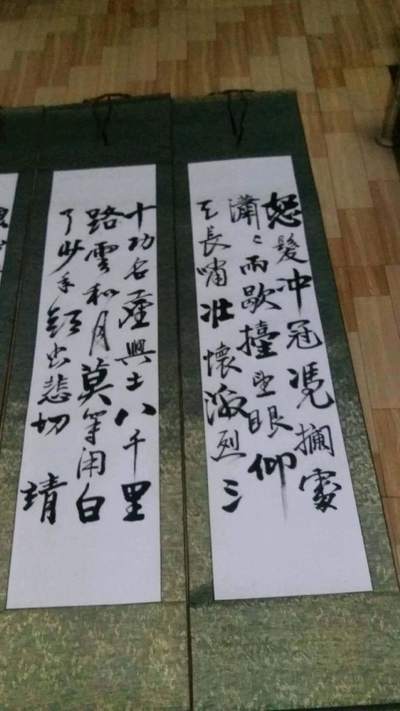 怒髮冲冠凴攔處
瀟〻雨歇擡望眼仰
天長嘯壯懷激烈三
十功名塵與土八千里
路雲和月莫等闲白
了少年頭空悲切 靖